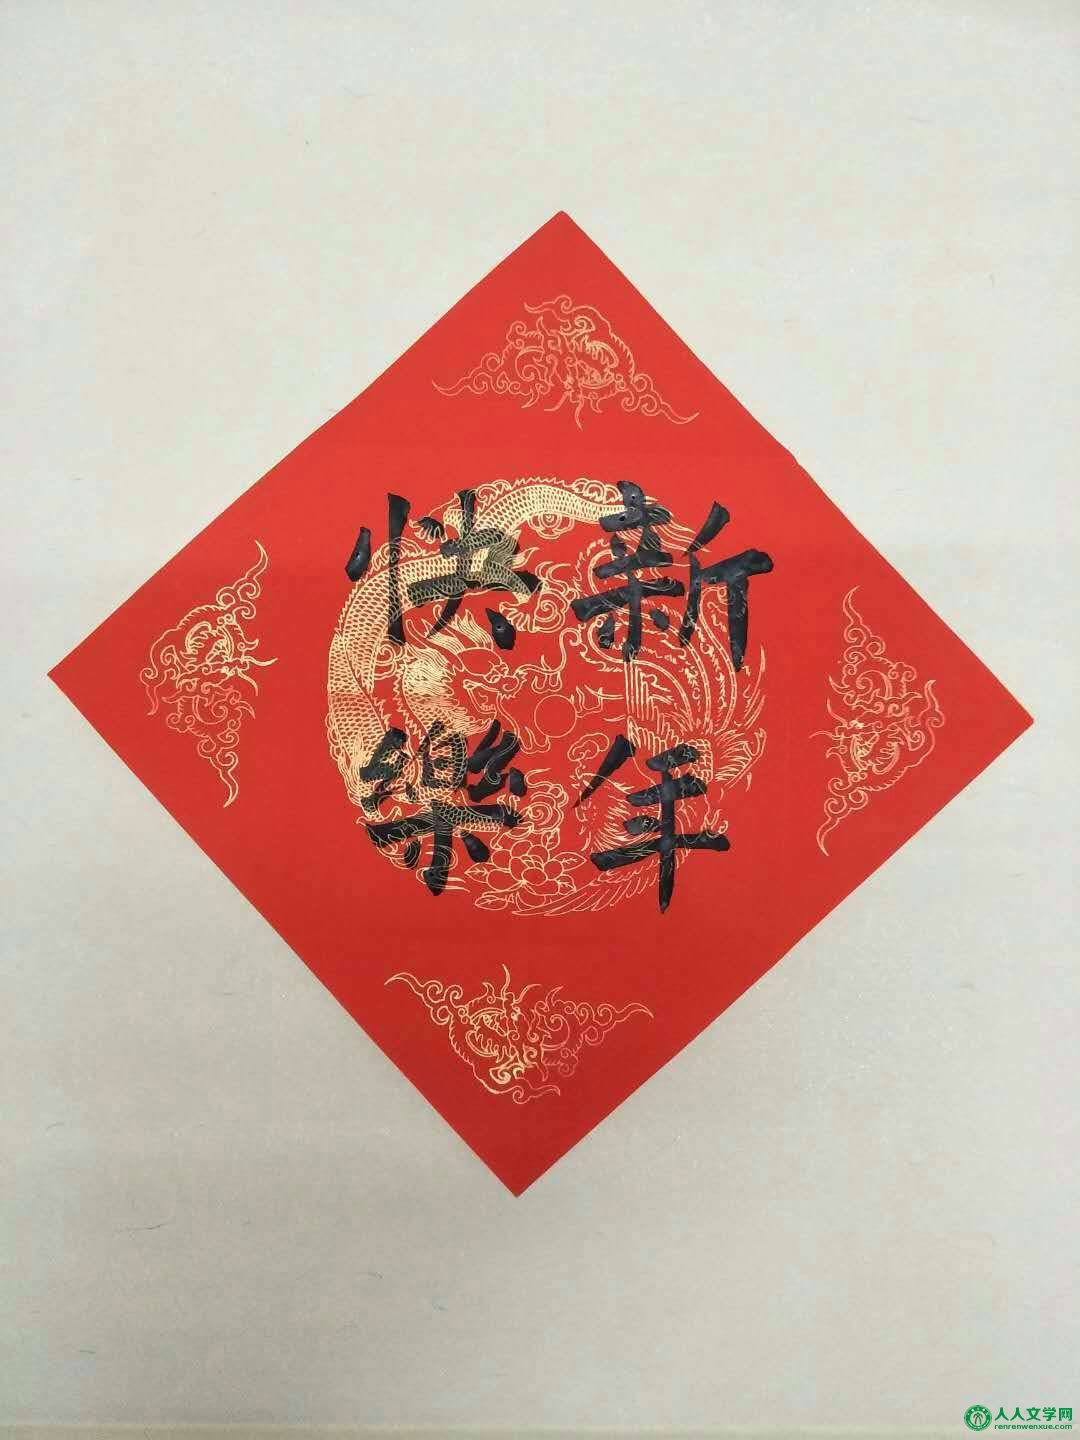 新年
快樂
人人文学网
renrenwenxue.com